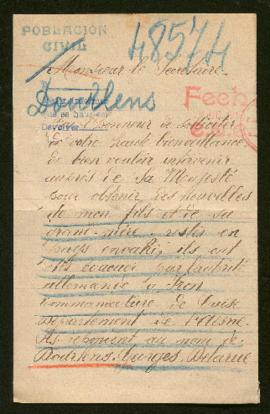 POBLACION
CIVIL
48574
Monsieur le Secrétaire
Doullens
Fech
DEVOLVER
l'honneur de solliciter
de votre haute bienveillance
de bien vouloir intervenir
auprès de Sa Majesté
pour obtenir des nouvelles
de mon fils et de sa
grand-mère restés en
pays envahi, ils ont
étés évacués par l'autorité
allemande à
commandature de Guise
Département de l'Aisne.
Ils répondent au nom de
Georges